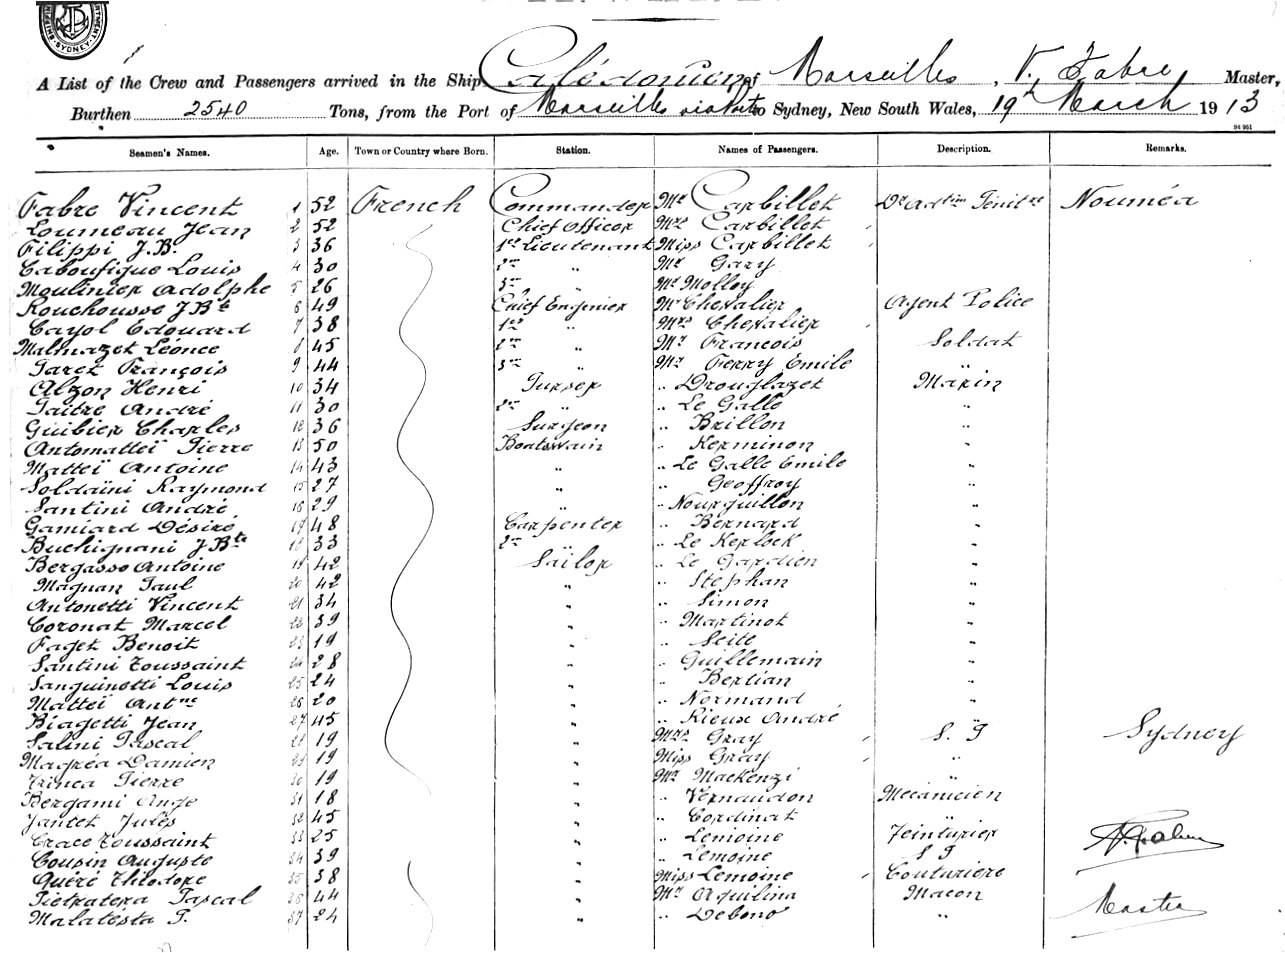 SYDNEY
A List of the Crew and Passengers arrived in the Ship Calédonien of Marseilles, V. Fabre Master,
Burthen 2540 Tons, from the Port of Marseilles via Ports to Sydney, New South Wales, 19th March 1913
Seamen's Names. Age. Town or Country where Born. Station. Names of Passengers. Description. Remarks.
Fabre Vincent 1 52 French Commander Mr Carbillet Dr Adtion Pénitre Nouméa
Loumeau Jean 2 52 Chief Officer Mrs Carbillet
Filippi J.B. 3 36 1er Lieutenant Miss Carbillet
Caboufigue Louis 4 30 2me " Mr Gary
Moulinier Adolphe 5 26 3me " Mr Molloy
Rouchousse J Bte 6 49 Chief Engenier Mr Chevalier Agent Police
Cayol Edouard 7 38 1er " Mrs Chevalier
Malmazet Léonce 8 45 2me " Mr Francois Soldat
Paret François 9 44 3me " Mr Ferry Emile "
Alzon Henri 10 34 Purser " Drouglazet Marin
Paitre André 11 30 2me " " Le Galle "
Guibier Charles 12 36 Surgeon " Brillon "
Antomattei Pierre 13 50 Boatswain " Kerminon "
Matteï Antoine 14 43 " " Le Galle Emile "
Soldaïni Raymond 15 27 " " Geoffroy "
Santini André 16 29 " " Nourguillon "
Gamiard Désiré 17 48 Carpenter " Bernard "
Buchignani J Bte 18 33 2me " " Le Kerlock "
Bergasso Antoine 19 42 Sailor " Le Gardien "
Magnan Paul 20 42 " " Stephan "
Antonetti Vincent 21 34 " " Simon "
Coronat Marcel 22 39 " " Martinot "
Faget Benoit 23 19 " " Seite "
Santini Toussaint 24 28 " " Guillemain "
Sanguinetti Louis 25 24 " " Bertian "
Matteï Antne 26 20 " " Normand "
Biagetti Jean 27 45 " " Rieux André "
Salini Pascal 28 19 " Mrs Gray S. P Sydney
Magréa Damien 29 19 " Miss Gray "
Trinca Pierre 30 19 " Mr Mackenzi "
Bergami Ange 31 18 " " Vernaudon Mécanicien
Jantet Jules 32 45 " " Cordinat "
Crace Toussaint 33 25 " " Lemoine Teinturier
Cousin Auguste 34 39 " " Lemoine S P
Quéré Théodore 35 38 " Miss Lemoine Couturiere
Pietratera Pascal 36 44 " Mr Aquilina Macon Master
Malatesta P. 37 24 " " Debono "